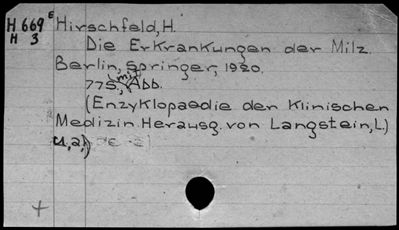 H 669 E Hirschfeld, H.
H 3
Die Erkrankungen der Milz.
Berlin, Springer, 1920.
77S., mit Abb.
(Enzyklopaedie der Klinischen
Medizin. Herausg. von Langstein, L.)
u, a,)